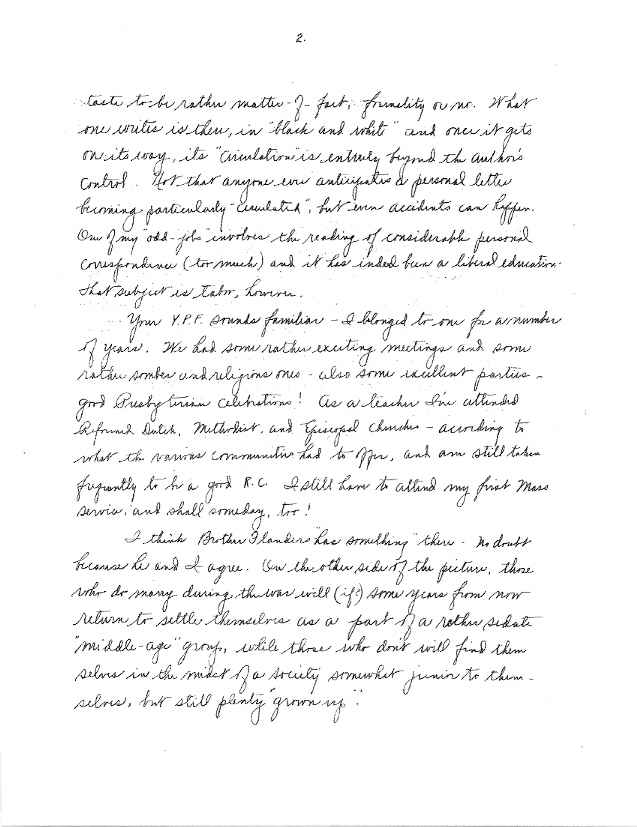 2.
taste to be rather matter-of-fact, formality or no. What
one writes is there, in "black and white" and once it gets
on its way, its "circulation" is entirely beyond the author's
control. Not that anyone ever anticipates a personal letter
becoming particularly "circulated", but even accidents can happen.
One of my "odd-jobs" involves the reading of considerable personal
correspondence (too much) and it has indeed been a liberal education.
That subject is taboo, however.
Your Y.P.F. sounds familiar - I belonged to one for a number
of years. We had some rather exciting meetings and some
rather somber and religious ones - also some excellent parties -
good Presbyterian celebrations! As a teacher I've attended
Reformed Dutch, Methodist, and Episcopal churches - according to
what the various communities had to offer, and am still taken
frequently to be a good R.C. I still have to attend my first Mass
service, and shall someday, too!
I think Brother Flanders has something there - no doubt
because he and I agree. On the other side of the picture, those
who do marry during the war will (if?) some years from now
return to settle themselves as a part of a rather sedate
"middle-age" group, while those who don't will find them
selves in the midst of a society somewhat junior to them-
selves, but still plenty "grown up".